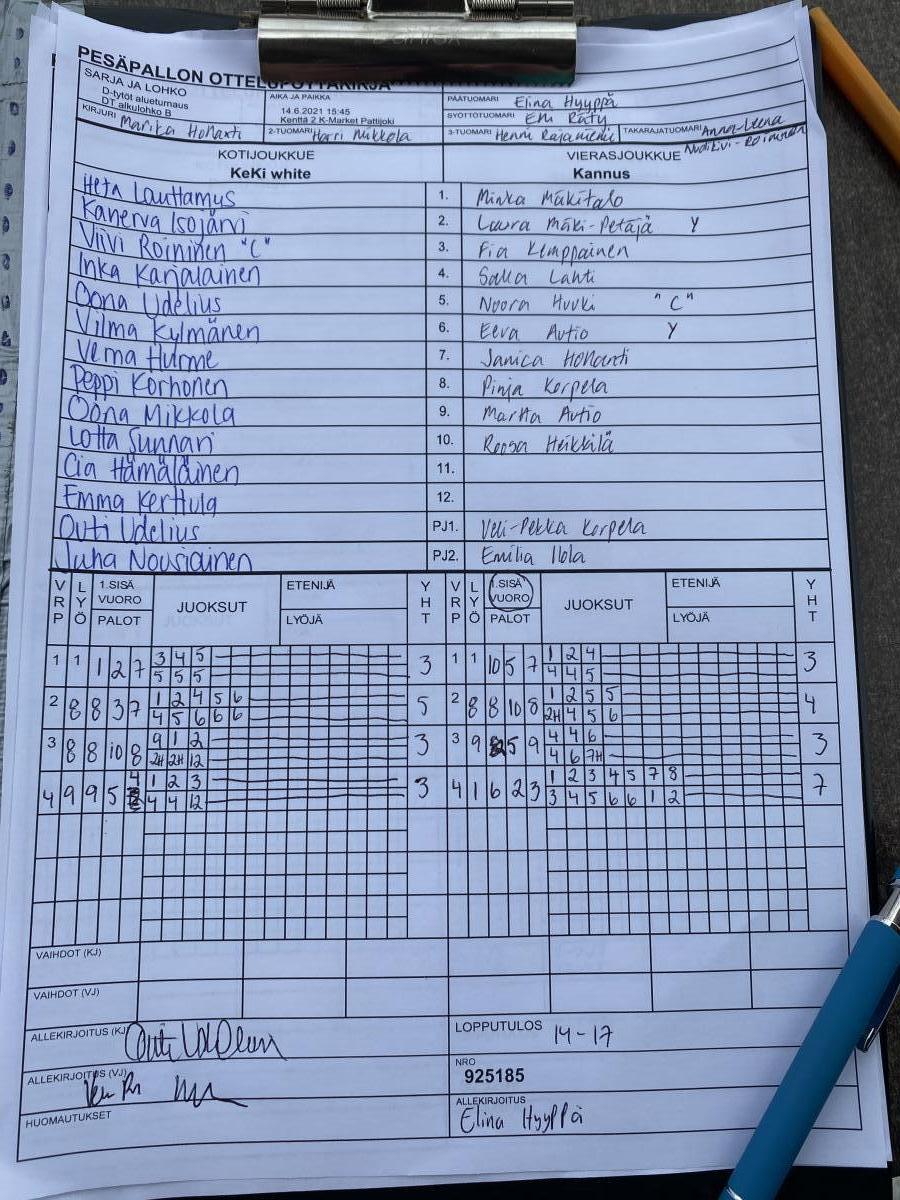 PESÄPALLON OTTELUPÖYTÄKIRJA
SARJA JA LOHKO
D-tytöt alueturnaus
DT alkulohko B
AIKA JA PAIKKA
14.6.2021 15:45
Kenttä 2 K-Market Pattijoki
PÄÄTUOMARI Elina Hyyppä
SYÖTTÖTUOMARI Räty
KIRJURI Marika Hohanti
2-TUOMARI Harri Mikkola
3-TUOMARI Henni Rajaniemi
TAKARAJATUOMARI Anna-Leena
KOTIJOUKKUE
KeKi white
VIERASJOUKKUE
Kannus
Heta Lauttamus 1. Minka Mäkitalo
Kanerva Isojärvi 2. Laura Mäki-Petäjä Y
Viivi Roininen "C" 3. Fia Kemppainen
Inka Karjalainen 4. Salla Lahti
Oona Udelius 5. Noora Huuki "C"
Vilma Kylmänen 6. Eeva Autio Y
Verna Hurme 7. Janica Hohanti
Peppi Korhonen 8. Pinja Korpela
Oona Mikkola 9. Martta Autio
Lotta Sunnari 10. Roosa Heikkilä
Cia Hämäläinen 11.
Emma Kerttula 12.
Outi Udelius PJ1. Veli-Pekka Korpela
Juha Nousiainen PJ2. Emilia
VRP LYÖ 1.SISÄ VUORO PALOT JUOKSUT ETENIJÄ LYÖJÄ YHT VRP LYÖ 1.SISÄ VUORO PALOT JUOKSUT ETENIJÄ LYÖJÄ YHT
1 1 1 2 7 3 4 5 3 1 1 10 5 7 1 2 4 3
5 5 5 4 4 5
2 8 8 3 7 1 2 4 5 6 5 2 8 8 10 8 1 2 5 5 4
4 5 6 6 6 2H 4 5 6
3 8 8 10 8 9 1 2 3 3 9 5 9 4 4 6 3
2H 2H 12 4 6 7H
4 9 9 5 4 1 2 3 3 4 1 6 2 3 1 2 3 4 5 7 8 7
4 4 12 3 4 5 6 6 1 2
VAIHDOT (KJ)
VAIHDOT (VJ)
ALLEKIRJOITUS (KJ)
LOPPUTULOS 14-17
ALLEKIRJOITUS (VJ)
NRO
925185
HUOMAUTUKSET
ALLEKIRJOITUS
Elina Hyyppä